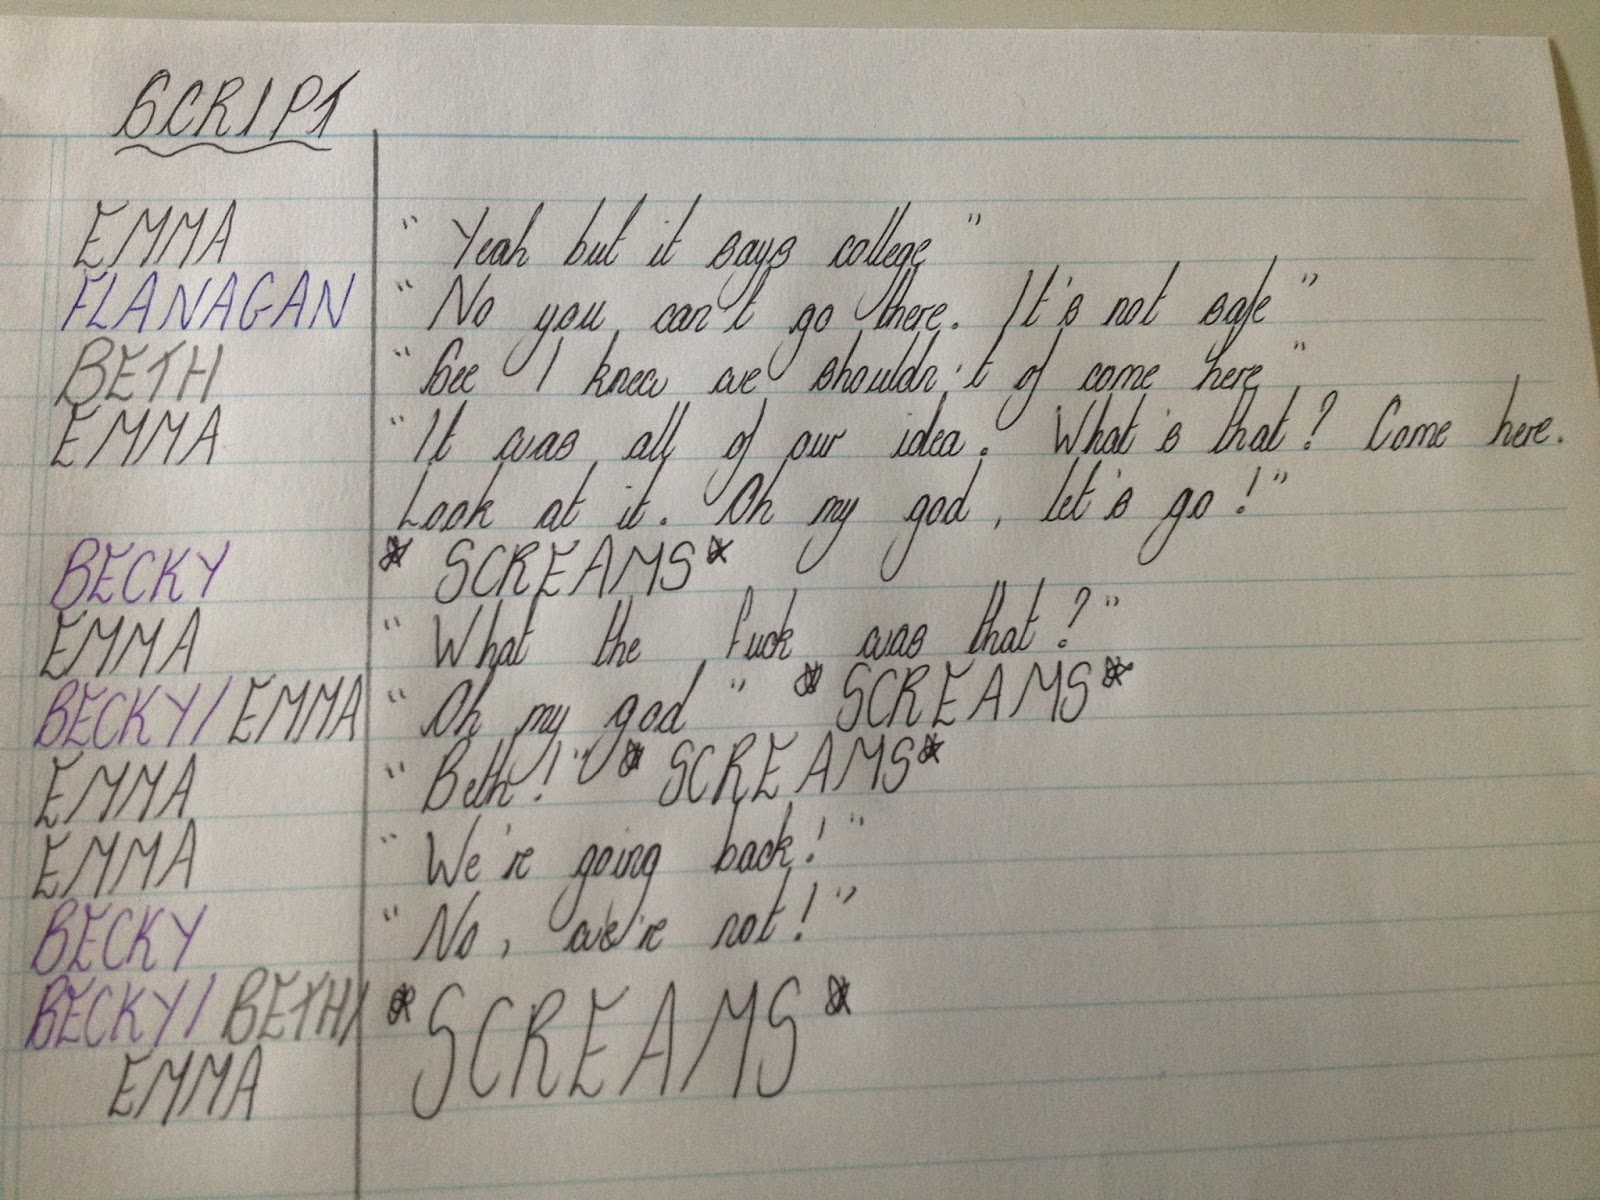 SCRIPT
EMMA " Yeah but it says college "
FLANAGAN " No you can't go there. It's not safe "
BETH " See I knew we shouldn't of come here "
EMMA " It was all of our idea. What's that? Come here.
Look at it. Oh my god, let's go! "
BECKY * SCREAMS *
EMMA " What the fuck was that? "
BECKY / EMMA " Oh my god " * SCREAMS *
EMMA " Beth! " * SCREAMS *
EMMA " We're going back! "
BECKY " No, we're not! "
BECKY / BETH / * SCREAMS *
EMMA